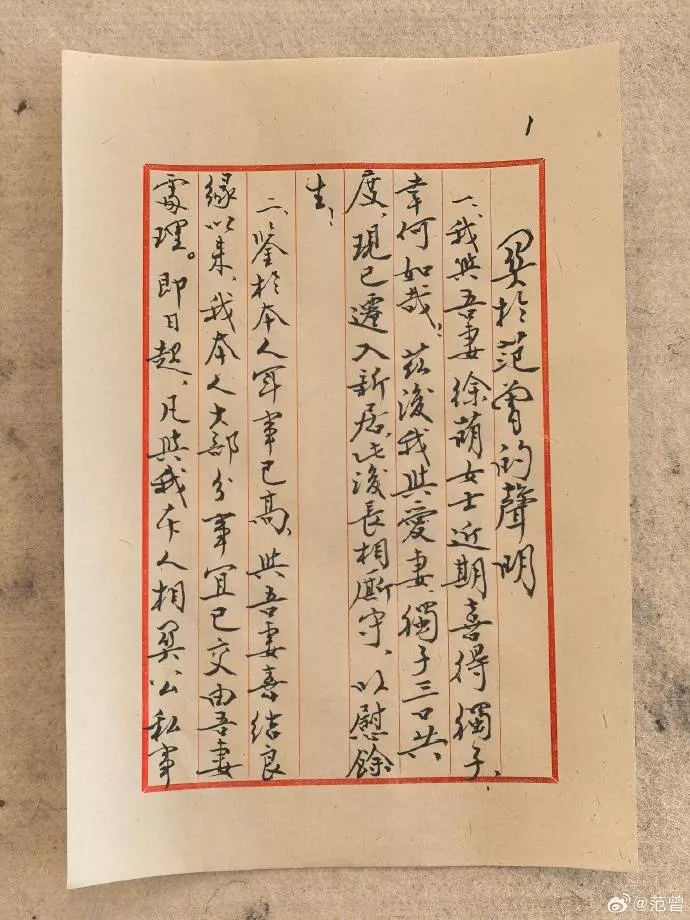 1
關於范曾的聲明
一、我與吾妻徐萌女士近期喜得獨子、
幸何如哉。茲後我與愛妻、獨子三口共
度、現已遷入新居、此後長相廝守、以慰餘
生；
二、鑒於本人年事已高、與吾妻喜結良
緣以來、我本人大部分事宜已交由吾妻
處理。即日起、凡與我本人相關公私事
@范曾